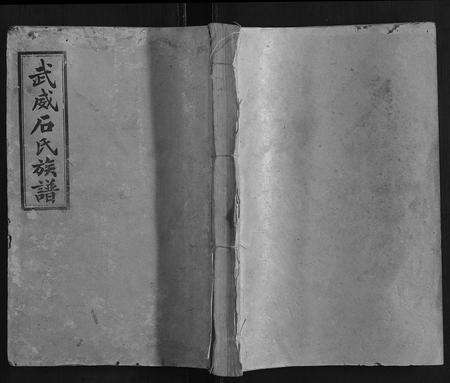 武威石氏族譜